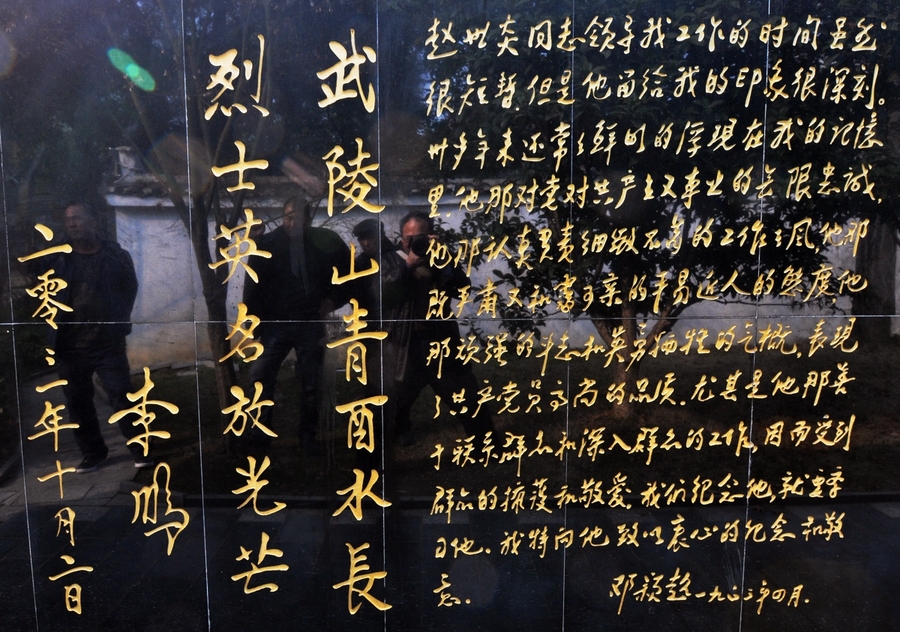 赵世炎同志领导我工作的时间虽然
很短暂，但是他留给我的印象很深刻。
卅多年来还常常鲜明的浮现在我的记忆
里。他那对党对共产主义事业的无限忠诚，
他那认真负责细致不苟的工作作风，他那
既严肃又和蔼可亲的平易近人的态度，他
那顽强的斗志和英勇牺牲的气概，表现
了共产党员高尚的品质。尤其是他那善
于联系群众和深入群众的工作，因而受到
群众的拥护和敬爱。我们纪念他，就要学
习他。我特向他致以衷心的纪念和敬
意。
邓颖超 一九六二年四月.
武陵山青酉水长
烈士英名放光芒
李鹏
二零〇二年十月二日